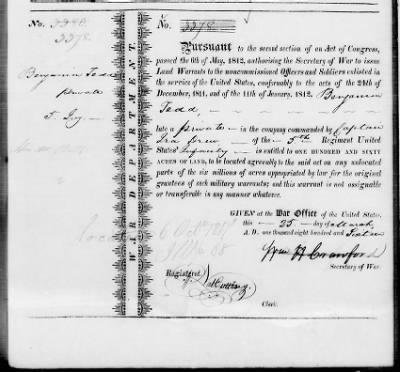 No. 3398
3378
Benjamin Tedd
private
5. Infy
No. 3378
PURSUANT to the second section of an Act of Congress,
passed the 6th of May, 1812, authorising the Secretary of War to issue
Land Warrants to the noncommissioned Officers and Soldiers enlisted
in the service of the United States, conformably to the acts of the 24th of
December, 1811, and of the 11th of January, 1812, Benjamin
Tedd,
late a private in the company commanded by Captain
Ira Drew of the 5th Regiment United
States' Infantry is entitled to ONE HUNDRED AND SIXTY
ACRES OF LAND, to be located agreeably to the said act on any unlocated
parts of the six millions of acres appropriated by law for the original
grantees of such military warrants; and this warrant is not assignable
or transferable in any manner whatever.
WAR DEPARTMENT.
GIVEN at the War Office of the United States,
this 25 day of March
A. D. one thousand eight hundred and Sixteen
Wm H Crawford
Secretary of War.
Registered
Clerk.